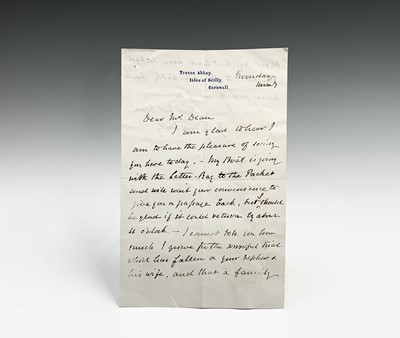 Tresco Abbey,
Isles of Scilly.
Cornwall.
Monday
Dear Mr. Dean
I am glad to hear I
am to have the pleasure of seeing
you here today. – My Boat is going
with the Letter-Bag to the Packet
and will wait your convenience to
give you a passage back, but should
be glad if it could return by about
o'clock – I cannot tell you how
much I grieve for the trial
which has fallen on your nephew &
his wife, and that a family